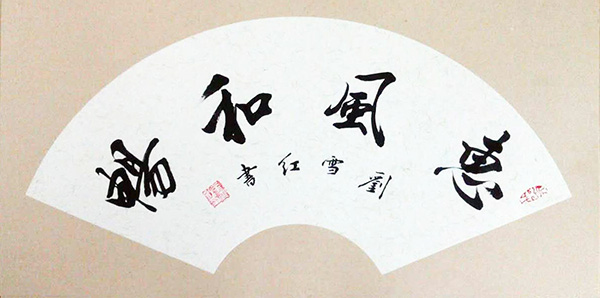 惠風和暢
劉雪红書